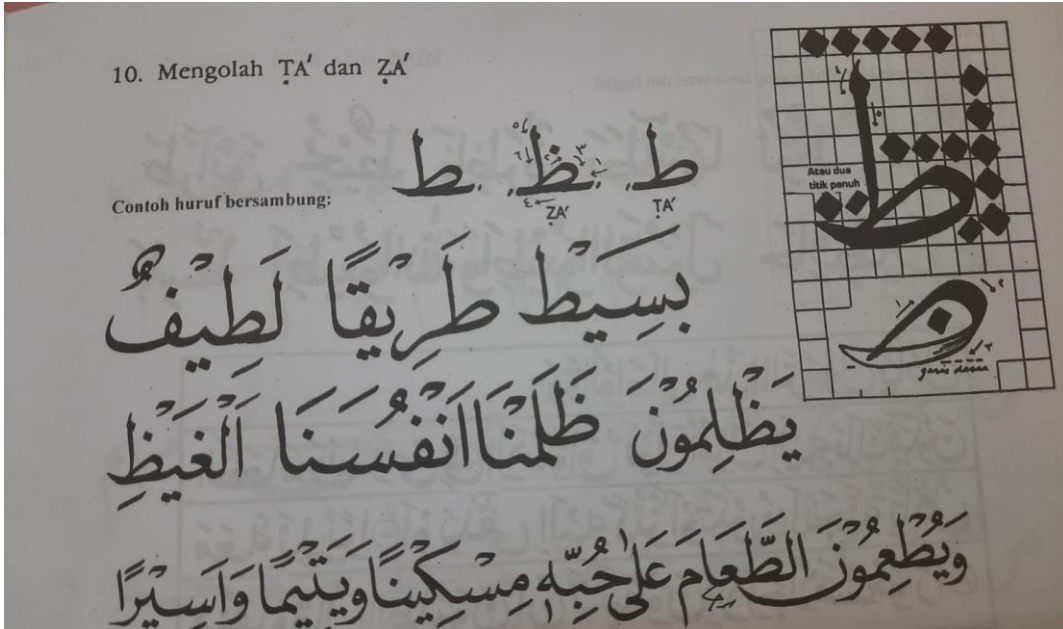 10. Mengolah ṬA' dan ẒA'
ط ظ ط
ẒA' ṬA'
Contoh huruf bersambung:
Atau dua
titik penuh
garis dasar
بَسِيْط طَرِيْقًا لَطِيْفٌ
يَظْلِمُوْنَ ظَلَمْنَا اَنْفُسَنَا اَلْغَيْظِ
وَيُطْعِمُوْنَ الطَّعَامَ عَلٰى حُبِّهٖ مِسْكِيْنًا وَيَتِيْمًا وَاَسِيْرًا